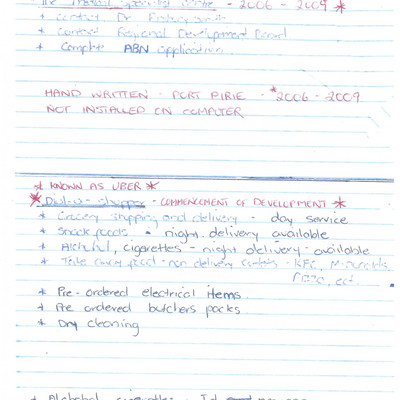 - 2006 - 2009 *
* Contact Dr
* Contact Regional Development Board
* Complete ABN application.
HAND WRITTEN - PORT PIRIE - *2006 - 2009
NOT INSTALLED ON COMPUTER
* KNOWN AS UBER *
* Dial-a- shopper - COMMENCEMENT OF DEVELOPMENT *
* Grocery shopping and delivery - day service
* Snack foods - night delivery available
* Alchohol, cigarettes - night delivery - available
* Take away food - non delivery - KFC,
* Pre-ordered electrical items.
* Pre ordered butchers packs
* Dry cleaning